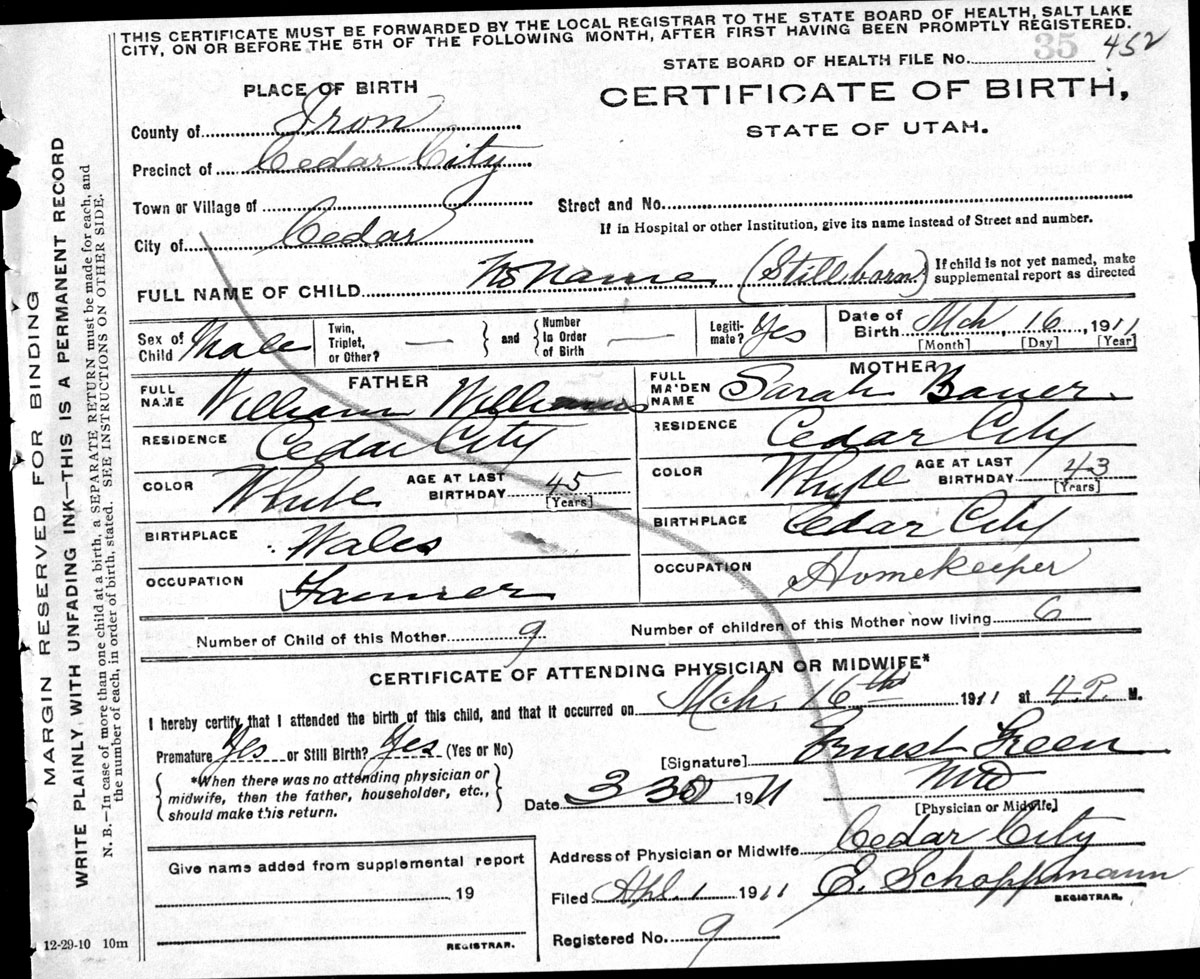 THIS CERTIFICATE MUST BE FORWARDED BY THE LOCAL REGISTRAR TO THE STATE BOARD OF HEALTH, SALT LAKE
CITY, ON OR BEFORE THE 5TH OF THE FOLLOWING MONTH, AFTER FIRST HAVING BEEN PROMPTLY REGISTERED.
35 452
STATE BOARD OF HEALTH FILE No.
PLACE OF BIRTH
CERTIFICATE OF BIRTH,
STATE OF UTAH.
County of Iron
Precinct of Cedar City
Town or Village of
Street and No.
If in Hospital or other Institution, give its name instead of Street and number.
City of Cedar
FULL NAME OF CHILD No Name (Stillborn)
If child is not yet named, make
supplemental report as directed
Sex of Child Male
Twin, Triplet, or Other? —
and
Number in Order of Birth —
Legiti-mate? Yes
Date of Birth Mch 16, 1911
[Month] [Day] [Year]
FATHER
FULL NAME William Williams
RESIDENCE Cedar City
COLOR White
AGE AT LAST BIRTHDAY 45 [Years]
BIRTHPLACE Wales
OCCUPATION Farmer
MOTHER
FULL MAIDEN NAME Sarah Bauer
RESIDENCE Cedar City
COLOR White
AGE AT LAST BIRTHDAY 43 [Years]
BIRTHPLACE Cedar City
OCCUPATION Homekeeper
Number of Child of this Mother 9
Number of children of this Mother now living 6
CERTIFICATE OF ATTENDING PHYSICIAN OR MIDWIFE*
I hereby certify that I attended the birth of this child, and that it occurred on Mch. 16th 1911 at 4 P. M.
Premature Yes or Still Birth? Yes (Yes or No)
*When there was no attending physician or
midwife, then the father, householder, etc.,
should make this return.
[Signature] Ernest Green
MD
[Physician or Midwife]
Date 3 30 1911
Address of Physician or Midwife Cedar City
Give name added from supplemental report
19
REGISTRAR.
Filed Apl. 1 1911 E. Schoppmann
REGISTRAR.
Registered No. 9
12-29-10 10m
MARGIN RESERVED FOR BINDING
WRITE PLAINLY, WITH UNFADING INK—THIS IS A PERMANENT RECORD
N. B.—In case of more than one child at a birth, a SEPARATE RETURN must be made for each, and
the number of each, in order of birth, stated. SEE INSTRUCTIONS ON OTHER SIDE.